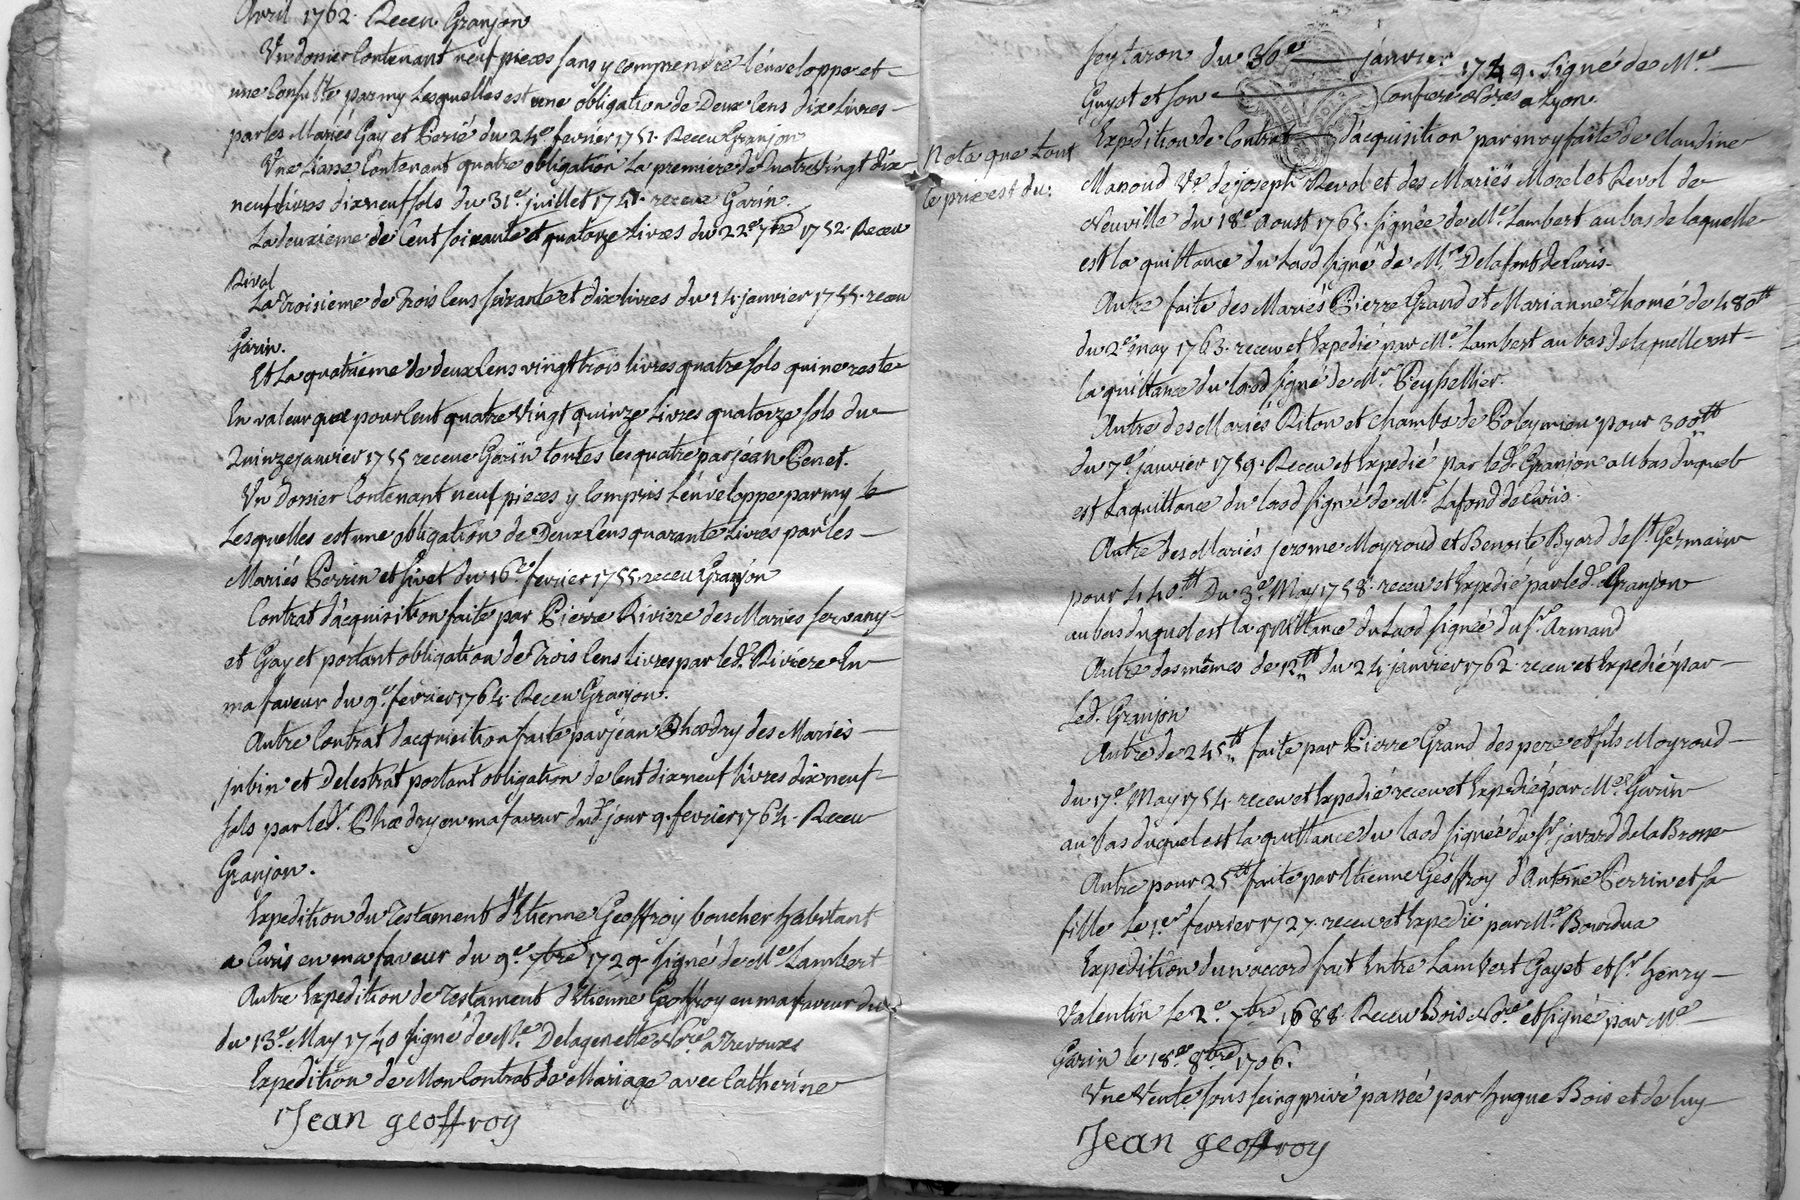 Avril 1762. Receu Granjon
Un dossier Contenant neuf pieces sans y comprendre l'enveloppe et
une Consulte parmy Lesquelles est une obligation de Deux Cens dix Livres
par les Mariés Gay et Perié du 24e fevrier 1751. Receu Granjon
Une Liasse Contenant quatre obligation La premiere de Quatre Vingt dix
neuf Livres dix neuf sols du 31e juillet 1741. receue Garin.
La deuxieme de Cent soixante et quatorze Livres du 22e 7bre 1752. Receu
Rival
La Troisieme de Trois Cens soixante et dix livres du 14 janvier 1755. receu
Garin.
Et La quatrieme de deux Cens vingt trois livres quatre sols qui ne reste
En valeur que pour Cent quatre Vingt quinze Livres quatorze sols du
Quinze janvier 1755 receue Garin toutes les quatre par jean Penet.
Un Dossier Contenant neuf pieces y Compris L'enveloppe parmy
Lesquelles est une obligation de Deux Cens quarante Livres par les
Mariés Perrin et Sivet du 16e fevrier 1755. receu Granjon
Contrat d'acquisition faite par Pierre Riviere des Mariés Servany
et Gay et portant obligation de Trois Cens Livres par led. Riviere En
ma faveur du 9e fevrier 1764. Receu Granjon.
Autre Contrat d'acquisition faite par jean Phœdry des Mariés
jubin et Delestrat portant obligation de Cent dix neuf Livres dix neuf
sols par led. Phœdry en ma faveur dud. jour 9. fevrier 1764. Receu
Granjon.
Expedition du Testament d'Etienne Geoffroy boucher habitant
a Curis en ma faveur du 9e 7bre 1729 signé de Me Lambert
Autre Expedition de Testament d'Etienne Geoffroy en ma faveur du
du 13e May 1740 signé de Me Delagenette Nore a Trevoux
Expedition de Mon Contrat de Mariage avec Catherine
Jean geoffroy
Seytaron du 30e janvier 1749. Signé de Me
Guyot et son Confrere Nores a Lyon.
Nota que tout
le prix est du:
Expedition de Contrat d'acquisition par moy faite de Claudine
Manoud Ve de joseph Revol et des Mariés Morel et Revol de
Neuville du 18e Aoust 1765. signée de Me Lambert au bas de laquelle
est la quittance du Laod signé de Mr Delafont de Curis.
Autre faite des Mariés Pierre Grand et Marianne Thomé de 480tt
du 2e may 1763. receu et Expedié par Me Lambert au bas de laquelle est
la quittance du laod signé de Mr Peyssellier.
Autre des Mariés Riton et Chambe de Poleymieu pour 300tt
du 7e janvier 1759. Receu et Expedié par led. Granjon au bas duquel
est La quittance du laod signé de Mr Lafond de Curis.
Autre des Mariés jerome Moyroud et Benoite Byard de St Germain
pour 440tt Du 3e May 1758. receu et Expedié par led. Granjon
au bas duquel est la quittance du Laod signée du Sr Armand
Autre des mêmes de 12tt du 24 janvier 1762 receu et Expedié par
Led. Granjon
Autre de 245tt faite par Pierre Grand des pere et fils Moyroud
du 17e May 1754. receu et Expedié receu et Expedié par Me Garin
au bas duquel est la quittance du laod signée du Sr javard de la Brosse
Autre pour 25tt faite par Etienne Geoffroy d'Antoine Perrin et sa
fille Le 1er fevrier 1727. receu et Expedié par Me Bourdua
Expedition d'un accord fait Entre Lambert Gayet et Sr henry
Valentin Le 2e 7bre 1688 Receu Bois Nore et signé par Me
Garin le 18e 8bre 1706.
Une Vente sous seing privé passée par hugue Bois et de luy
Jean geoffroy